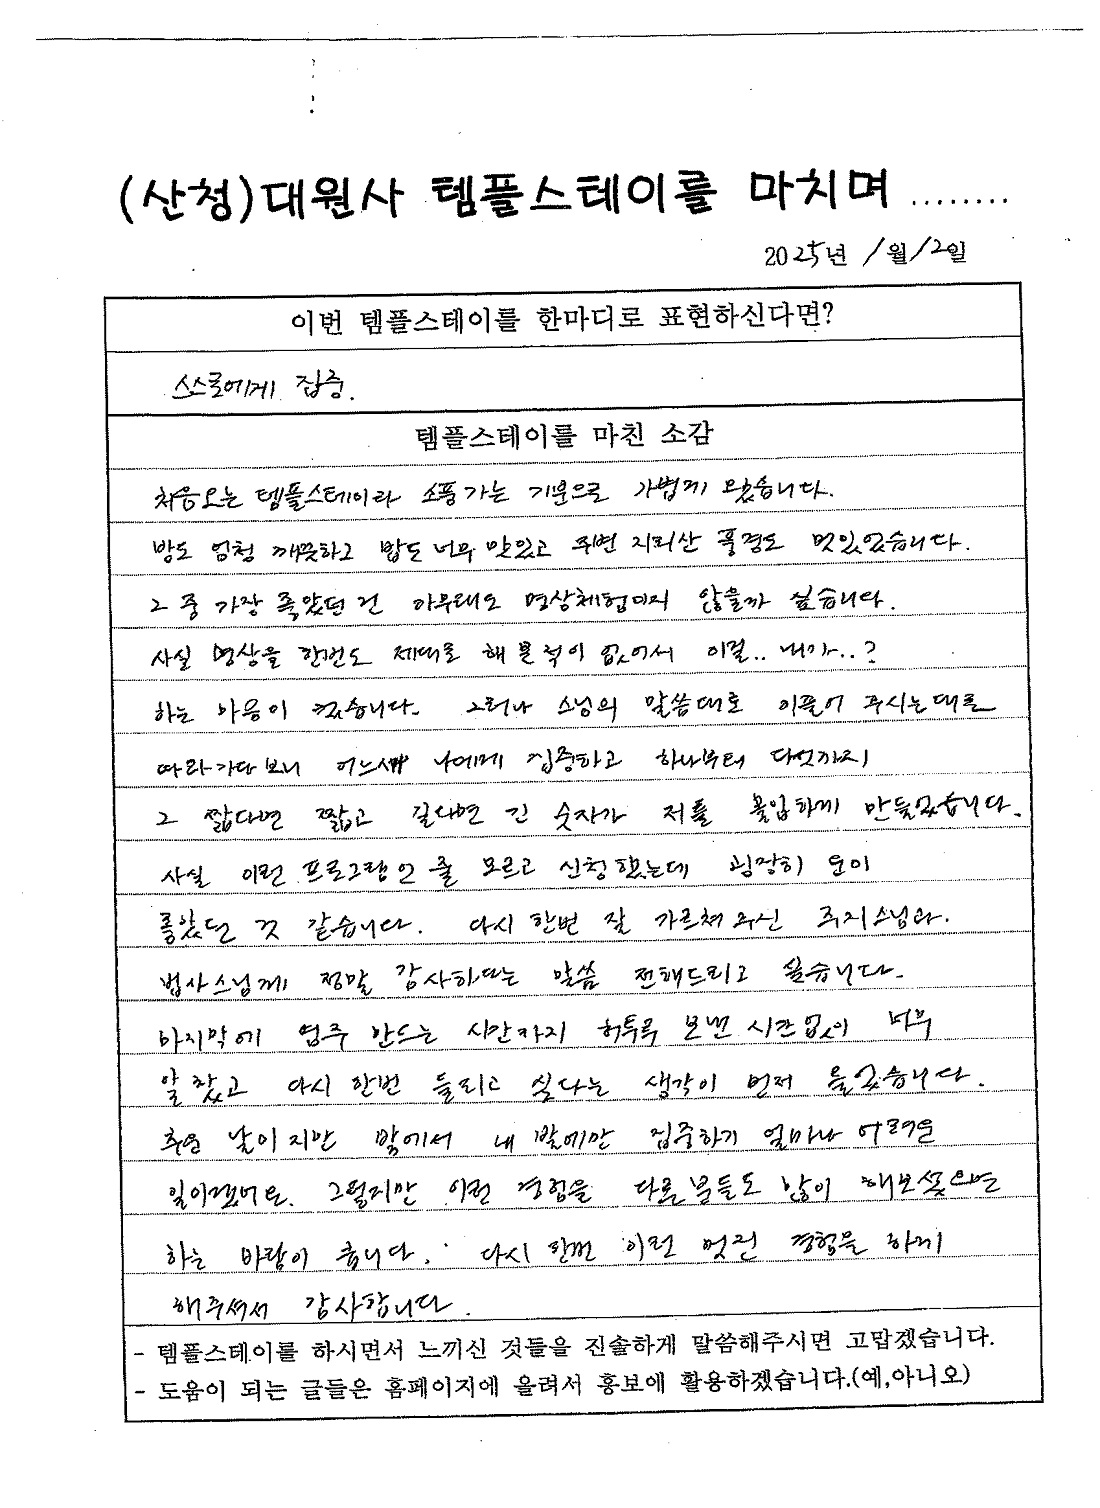 (산청)대원사 템플스테이를 마치며 ........
2025년 1월 12일
이번 템플스테이를 한마디로 표현하신다면?
스스로에게 집중.
템플스테이를 마친 소감
처음오는 템플스테이라 소풍가는 기분으로 가볍게 왔습니다.
방도 엄청 깨끗하고 밥도 너무 맛있고 주변 지리산 풍경도 멋있었습니다.
그 중 가장 좋았던 건 아무래도 명상체험이지 않을까 싶습니다.
사실 명상을 한번도 제대로 해 본 적이 없어서 이걸.. 내가..?
하는 마음이 컸습니다. 그러나 스님의 말씀대로 이끌어 주시는대로
따라가다 보니 어느새 나에게 집중하고 하나부터 다섯까지
그 짧다면 짧고 길다면 긴 숫자가 저를 몰입하게 만들었습니다.
사실 이런 프로그램인 줄 모르고 신청했는데 굉장히 운이
좋았던 것 같습니다. 다시 한번 잘 가르쳐주신 주지스님과.
법사스님께 정말 감사하다는 말씀 전해드리고 싶습니다.
마지막에 염주 만드는 시간까지 허투루 보낸 시간없이 너무
알찼고 다시 한번 들리고 싶다는 생각이 먼저 들었습니다.
추운 날이지만 밖에서 내 발에만 집중하기 얼마나 어려운
일이겠어요. 그렇지만 이런 경험을 다른 분들도 많이 해보셨으면
하는 바람이 큽니다. 다시 한번 이런 멋진 경험을 하게
해주셔서 감사합니다.
- 템플스테이를 하시면서 느끼신 것들을 진솔하게 말씀해주시면 고맙겠습니다.
- 도움이 되는 글들은 홈페이지에 올려서 홍보에 활용하겠습니다.(예,아니오)